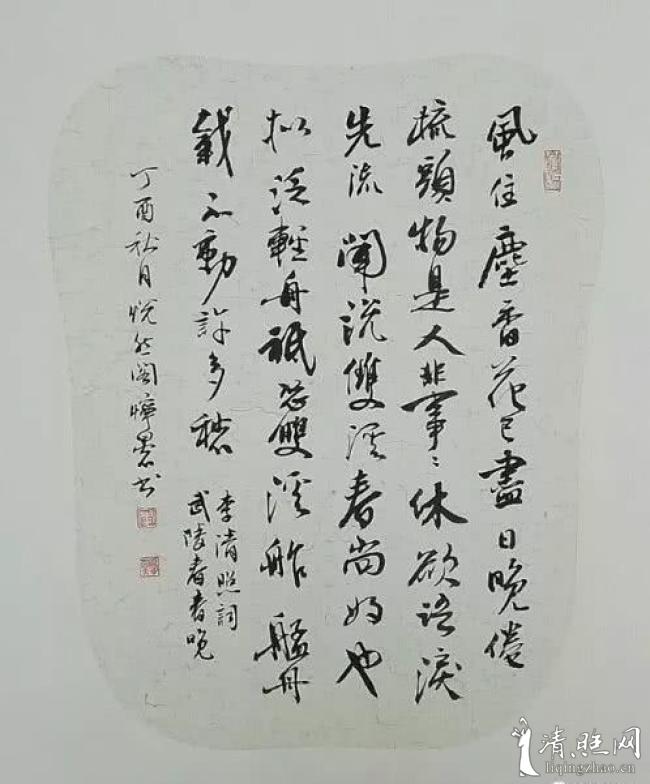 風住塵香花已盡日晚倦
梳頭物是人非事〻休欲语淚
先流闻说雙溪春尚好也
拟泛輕舟祗恐雙溪舴艋舟
載不動許多愁
李清照詞
武陵春春晚
丁酉秋月悦然阁婷墨书
清照网
liqingzhao.cn